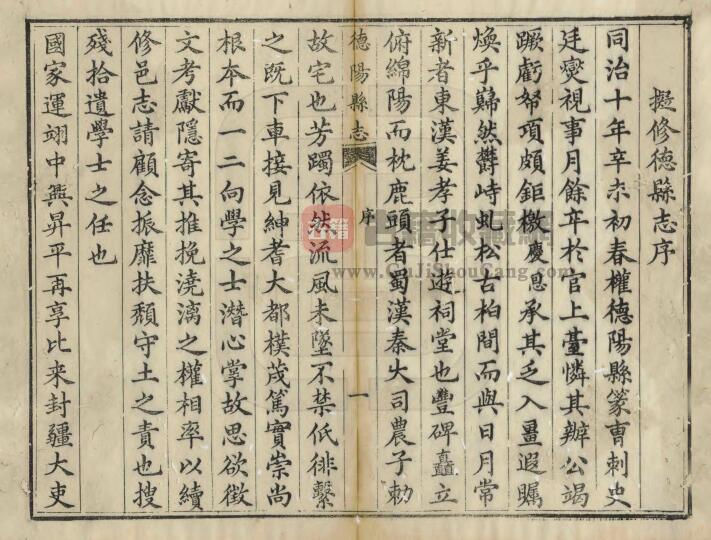 擬修德縣志序
同治十年辛未初春權德陽縣篆曹刺史
廷燮視事月餘卒於官上臺憐其辦公竭
蹶虧帑項頗鉅檄慶恩承其乏入畺遐矚
煥乎巋然欝峙虬松古柏間而與日月常
新者東漢姜孝子仕遊祠堂也豐碑矗立
俯綿陽而枕鹿頭者蜀漢秦大司農子勅
故宅也芳躅依然流風未墜不禁低徘繫
之既下車接見紳耆大都樸茂篤實崇尚
根本而一二向學之士潛心掌故思欲徵
文考獻隱寄其推挽澆漓之權相率以續
修邑志請顧念振靡扶頹守土之責也搜
殘拾遺學士之任也
國家運翊中興昇平再享比来封疆大吏
德陽縣志
序
一
古籍收藏網
www.GuJiShouCang.com